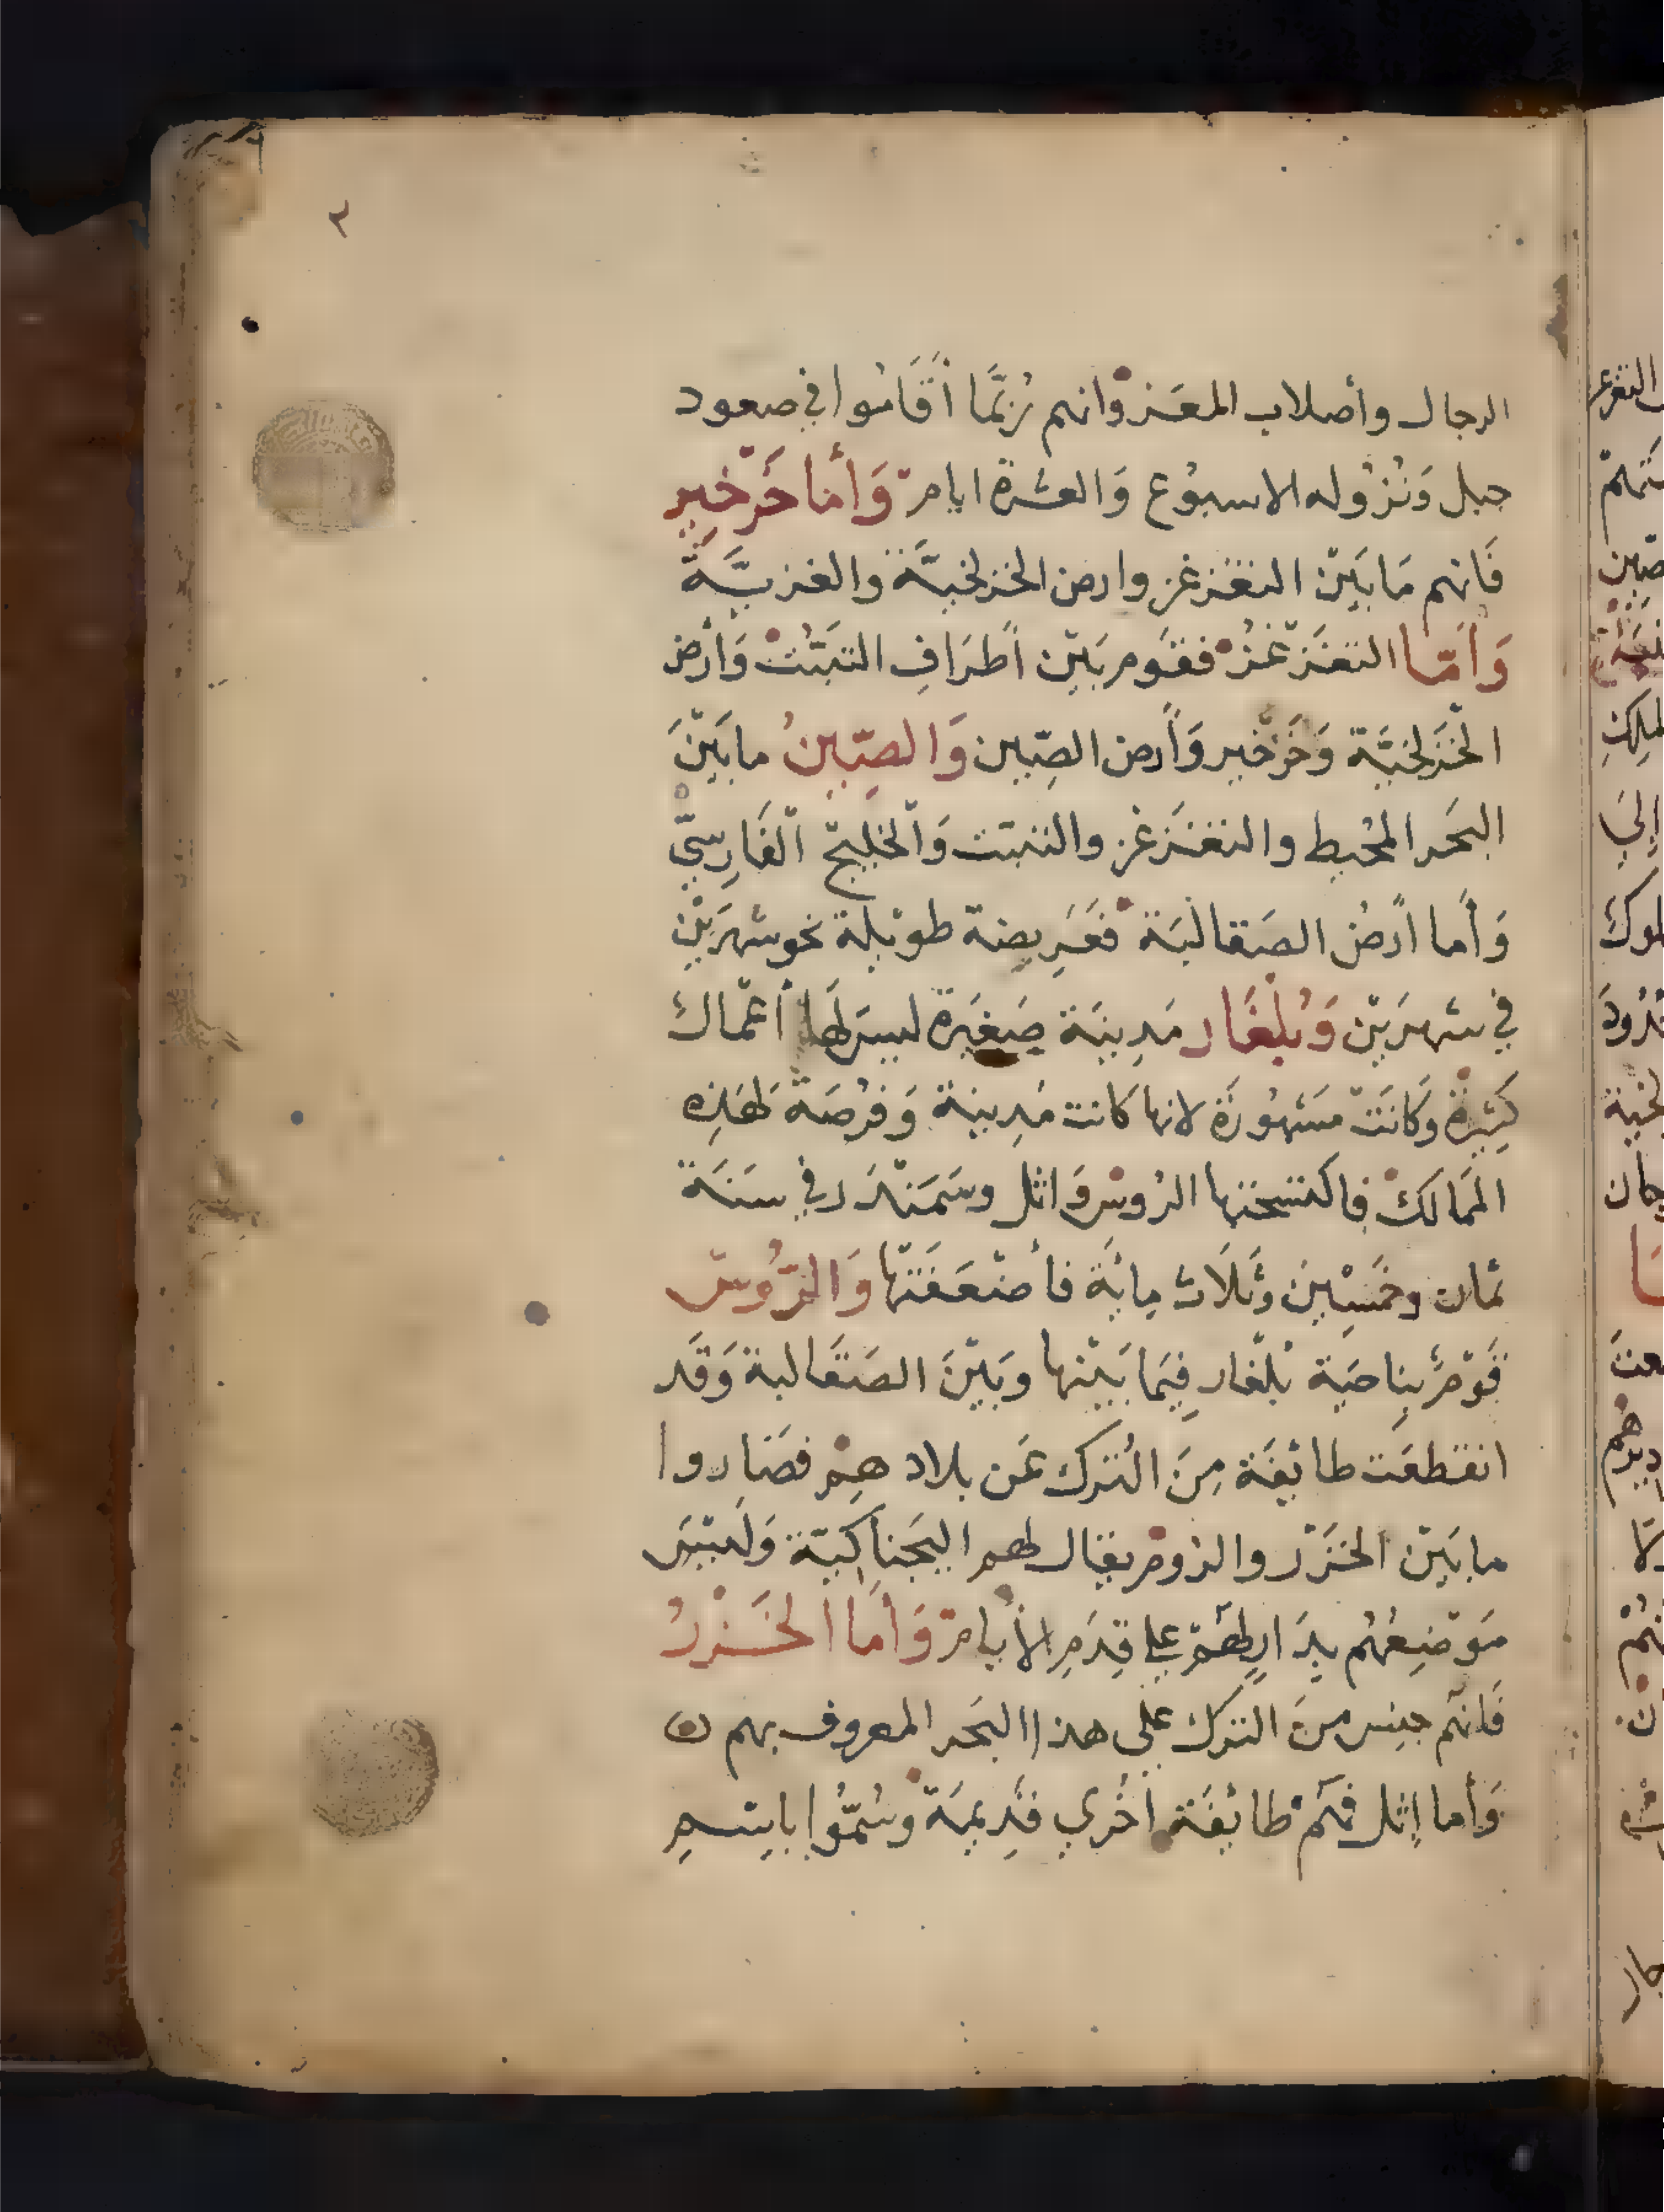 ٢
الرجال وأصلاب المعَز وانهم رُبَّمَا أَقَامُوا في صعود
جبل وَنُزُوله الاسبُوع وَالعشرة ايام وَأَما خَرْخِير
فَانهم مَا بَيْن التغزغز وارض الخزلخيَّة والغزيَّة
وَأَمّا التغَزغُز فقَوم بَيْن أَطرَافِ التبَّت وَأَرض
الخَزلخيَّة وَخَرْخير وَأَرض الصِّين وَالصِّينُ ما بَيْنَ
البَحَر المُحيط والتغَزغز والتبت وَالخليج الفَارِسيّ
وَأَما أَرضُ الصَقالبَة فعَرِيضة طويلة نحو شهرَين
في شهرَيْن وَبُلغَار مَدِينَة صَغِيرَة ليسَ لهَا أعمال
كَثِيرة وَكانَت مَشهُورَة لانها كانت مَدِينة وَفُرْضَة لهَذِه
المَمَالك فاكتسحتها الرُوس وَاثل وسَمَندَر في سَنَة
ثمان وخَمْسِين وَثَلَاث مِايَة فأضْعَفَتْهَا وَالرُّوس
قَوْم بِناحيَة بُلْغار فِيمَا بَيْنها وبَيْنَ الصَقَالبة وَقَد
انقطعَت طائِفَة مِنَ التُرك عَن بلادهِم فصَاروا
ما بَيْن الخَزَر والرُوم يقال لهم البَجَناكيّة وَلَيْسَ
مَوْضِعُهُم بِدَارٍ لهُمْ على قِدَمِ الأيام وَأَما الخَزرُ
فَانهم جِنس مِنَ الترك على هذا البَحَر المعروف بهم
وَأما اثل فهُم طائفَة أخرَي قَدِيمَة وسُمُّوا باسمِ